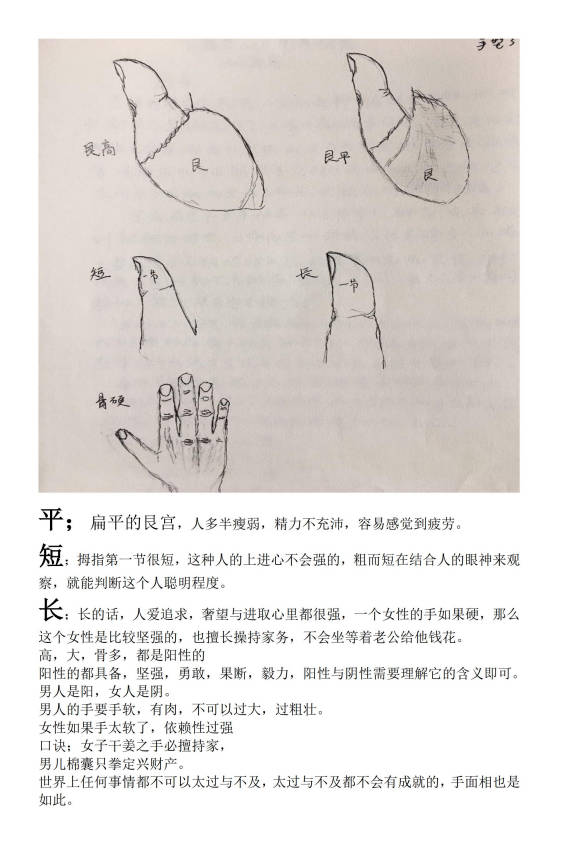 手型3
艮高
艮
艮平
艮
短
一节
长
一节
骨硬
平；扁平的艮宫，人多半瘦弱，精力不充沛，容易感觉到疲劳。
短；拇指第一节很短，这种人的上进心不会强的，粗而短在结合人的眼神来观
察，就能判断这个人聪明程度。
长；长的话，人爱追求，奢望与进取心里都很强，一个女性的手如果硬，那么
这个女性是比较坚强的，也擅长操持家务，不会坐等着老公给他钱花。
高，大，骨多，都是阳性的
阳性的都具备，坚强，勇敢，果断，毅力，阳性与阴性需要理解它的含义即可。
男人是阳，女人是阴。
男人的手要手软，有肉，不可以过大，过粗壮。
女性如果手太软了，依赖性过强
口诀；女子干姜之手必擅持家，
男儿棉囊只拳定兴财产。
世界上任何事情都不可以太过与不及，太过与不及都不会有成就的，手面相也是
如此。